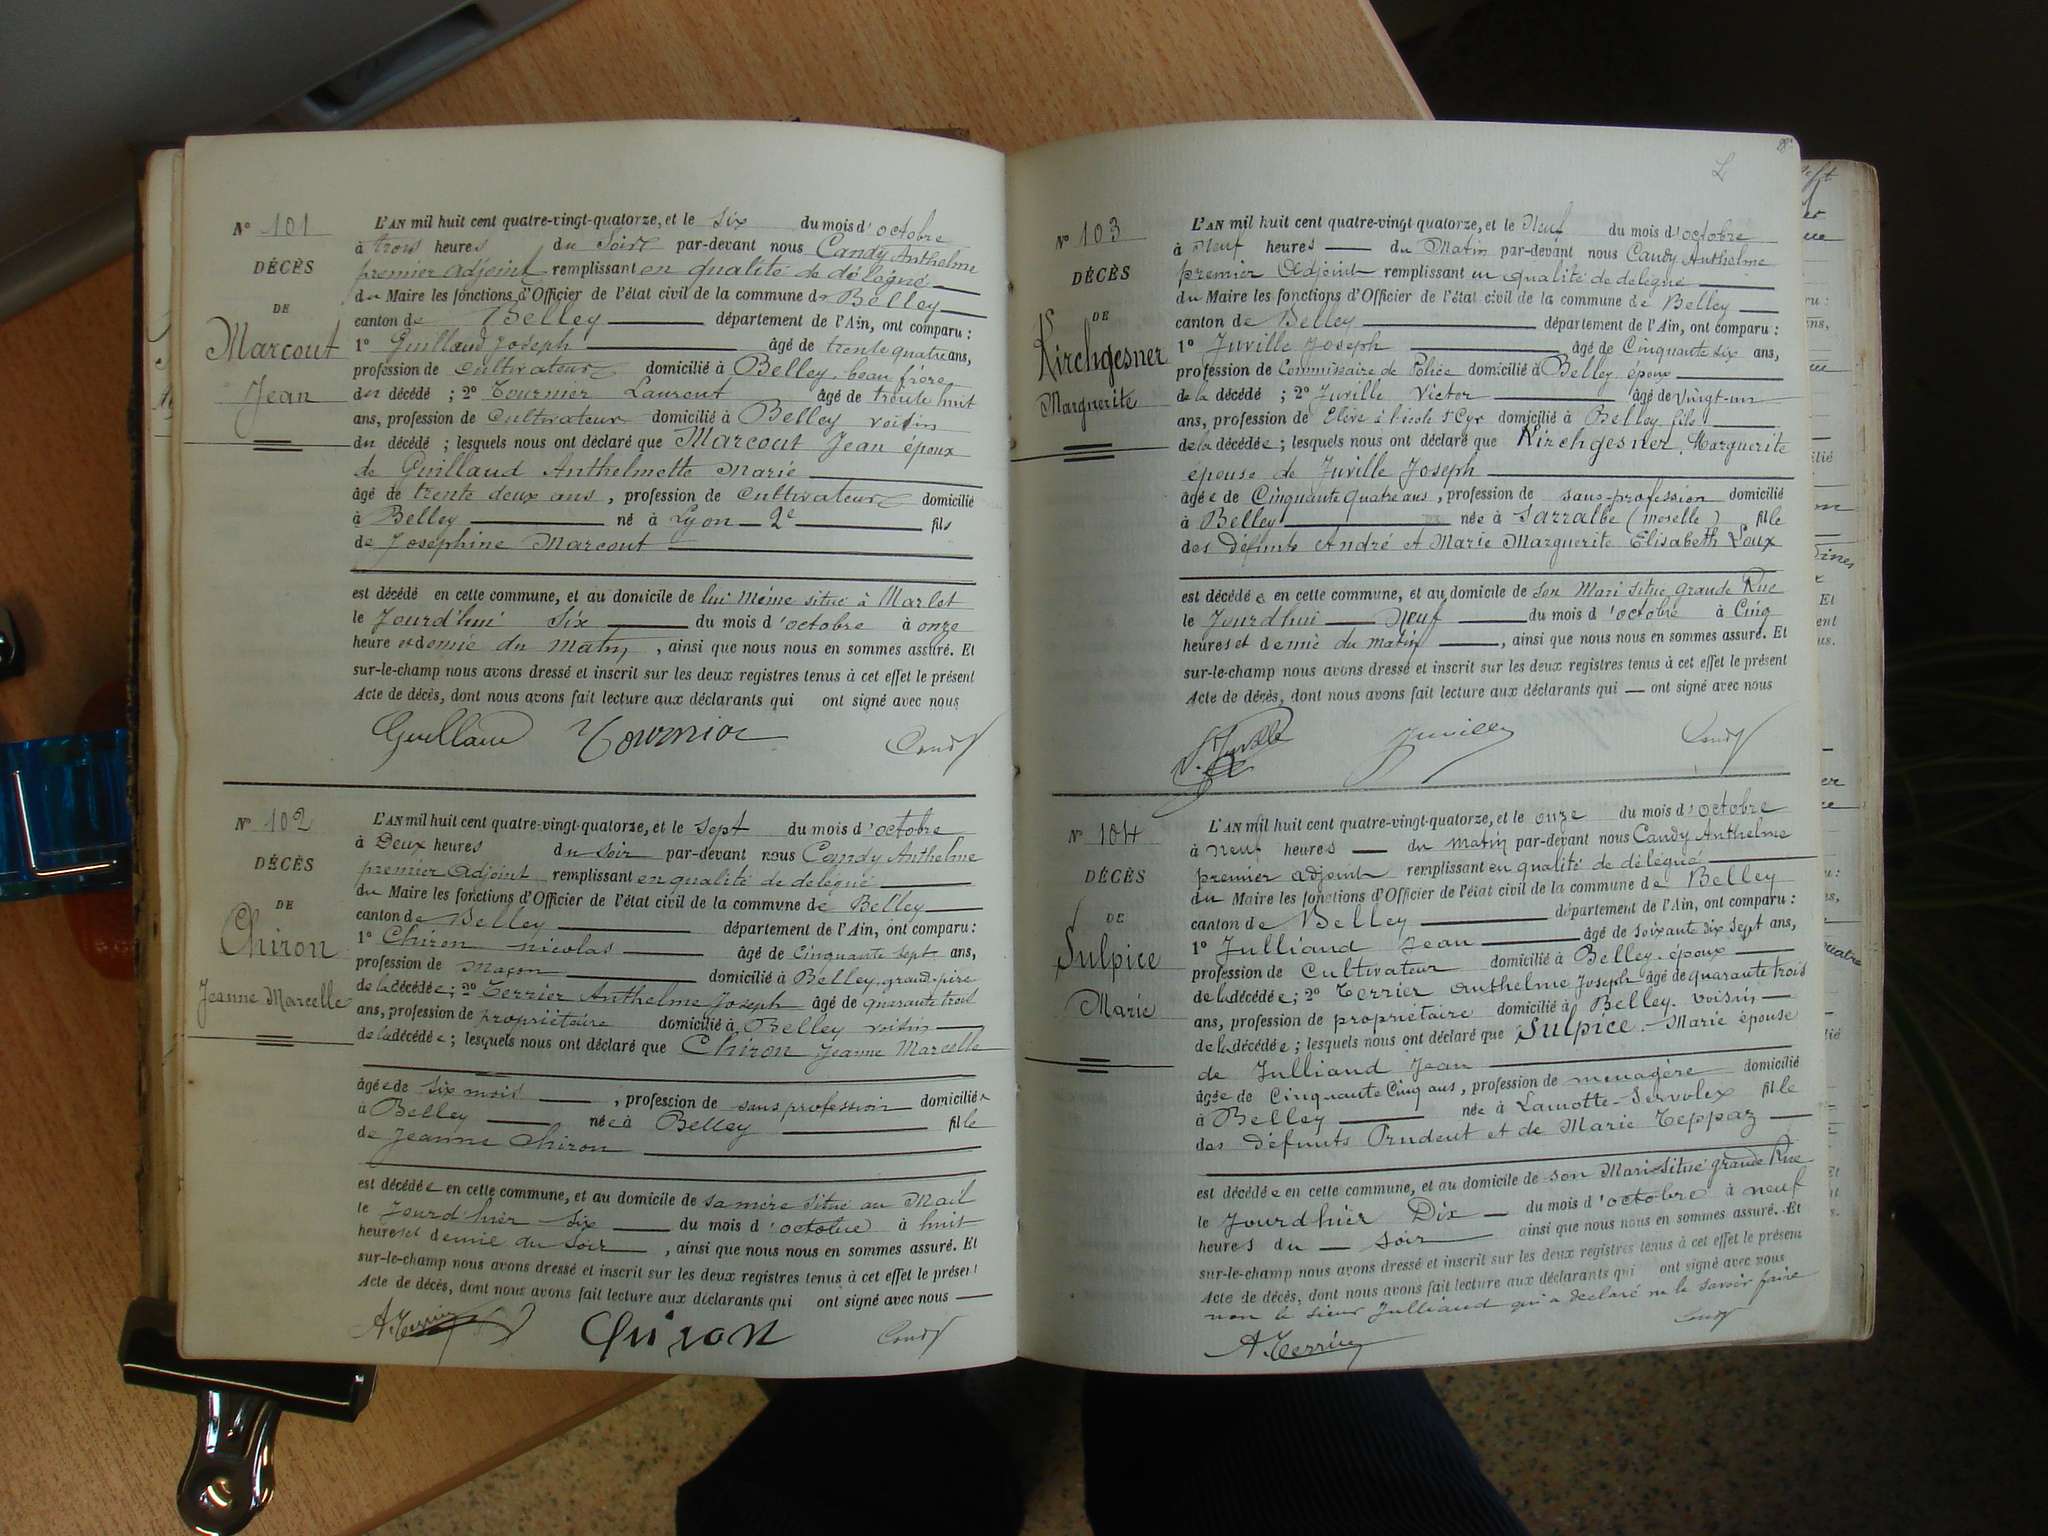 N° 101
DÉCÈS
DE
Marcout
Jean
L'AN mil huit cent quatre-vingt-quatorze, et le six du mois d'octobre
à trois heures du Soir par-devant nous Candy Anthelme
premier adjoint remplissant en qualité de délégué
du Maire les fonctions d'Officier de l'état civil de la commune de Belley
canton de Belley département de l'Ain, ont comparu :
1° Guillaud Joseph âgé de trente quatre ans,
profession de Cultivateur domicilié à Belley, beau frère
du décédé ; 2° Tournier Laurent âgé de trente huit
ans, profession de Cultivateur domicilié à Belley voisin
du décédé ; lesquels nous ont déclaré que Marcout Jean époux
de Guillaud Anthelmette Marie
âgé de trente deux ans, profession de Cultivateur domicilié
à Belley né à Lyon - 2e fils
de Joséphine Marcout
est décédé en cette commune, et au domicile de lui même situé à Marlet
le Jourd'hui Six du mois d'octobre à onze
heure et demie du matin, ainsi que nous nous en sommes assuré. Et
sur-le-champ nous avons dressé et inscrit sur les deux registres tenus à cet effet le présent
Acte de décès, dont nous avons fait lecture aux déclarants qui ont signé avec nous
Guillaud Tournier Candy
N° 102
DÉCÈS
DE
Chiron
Jeanne Marcelle
L'AN mil huit cent quatre-vingt-quatorze, et le sept du mois d'octobre
à Deux heures du soir par-devant nous Candy Anthelme
premier adjoint remplissant en qualité de délégué
du Maire les fonctions d'Officier de l'état civil de la commune de Belley
canton de Belley département de l'Ain, ont comparu :
1° Chiron Nicolas âgé de Cinquante sept ans,
profession de Maçon domicilié à Belley, grand-père
de la décédée ; 2° Terrier Anthelme Joseph âgé de quarante trois
ans, profession de propriétaire domicilié à Belley voisin
de la décédée ; lesquels nous ont déclaré que Chiron Jeanne Marcelle
âgée de six mois, profession de sans profession domiciliée
à Belley née à Belley fille
de Jeanne Chiron
est décédée en cette commune, et au domicile de sa mère situé au Mail
le Jourd'hier six du mois d'octobre à huit
heures et demie du soir, ainsi que nous nous en sommes assuré. Et
sur-le-champ nous avons dressé et inscrit sur les deux registres tenus à cet effet le présent
Acte de décès, dont nous avons fait lecture aux déclarants qui ont signé avec nous
A. Terrier Chiron Candy
N° 103
DÉCÈS
DE
Kirchgesner
Marguerite
L'AN mil huit cent quatre-vingt quatorze, et le Neuf du mois d'octobre
à Neuf heures du Matin par-devant nous Candy Anthelme
premier Adjoint remplissant en qualité de délégué
du Maire les fonctions d'Officier de l'état civil de la commune de Belley
canton de Belley département de l'Ain, ont comparu :
1° Juville Joseph âgé de Cinquante six ans,
profession de Commissaire de Police domicilié à Belley époux
de la décédé ; 2° Juville Victor âgé de vingt-un
ans, profession de Elève à l'école St Cyr domicilié à Belley fils
de la décédée ; lesquels nous ont déclaré que Kirchgesner, Marguerite
épouse de Juville Joseph
âgée de Cinquante quatre ans, profession de sans-profession domicilié
à Belley née à Sarralbe (moselle) fille
des défunts André et Marie Marguerite Elisabeth Loux
est décédée en cette commune, et au domicile de son Mari situé grande Rue
le Jourd'hui Neuf du mois d'octobre à Cinq
heures et demie du matin, ainsi que nous nous en sommes assuré. Et
sur-le-champ nous avons dressé et inscrit sur les deux registres tenus à cet effet le présent
Acte de décès, dont nous avons fait lecture aux déclarants qui ont signé avec nous
V. Juville Juville Candy
N° 104
DÉCÈS
DE
Sulpice
Marie
L'AN mil huit cent quatre-vingt-quatorze, et le onze du mois d'octobre
à neuf heures du Matin par-devant nous Candy Anthelme
premier adjoint remplissant en qualité de délégué
du Maire les fonctions d'Officier de l'état civil de la commune de Belley
canton de Belley département de l'Ain, ont comparu :
1° Julliand Jean âgé de soixante dix sept ans,
profession de Cultivateur domicilié à Belley époux
de la décédée ; 2° Terrier Anthelme Joseph âgé de quarante trois
ans, profession de propriétaire domicilié à Belley. voisin
de la décédée ; lesquels nous ont déclaré que Sulpice. Marie épouse
de Julliand Jean
âgée de Cinquante Cinq ans, profession de menagère domicilié
à Belley née à Lamotte-Servolex fille
des défunts Prudent et de Marie Teppaz
est décédée en cette commune, et au domicile de son Mari situé grande Rue
le Jourd'hier Dix du mois d'octobre à neuf
heures du soir ainsi que nous nous en sommes assuré. Et
sur-le-champ nous avons dressé et inscrit sur les deux registres tenus à cet effet le présent
Acte de décès, dont nous avons fait lecture aux déclarants qui ont signé avec nous
non le sieur Julliand qui a déclaré ne le savoir faire
A. Terrier Candy